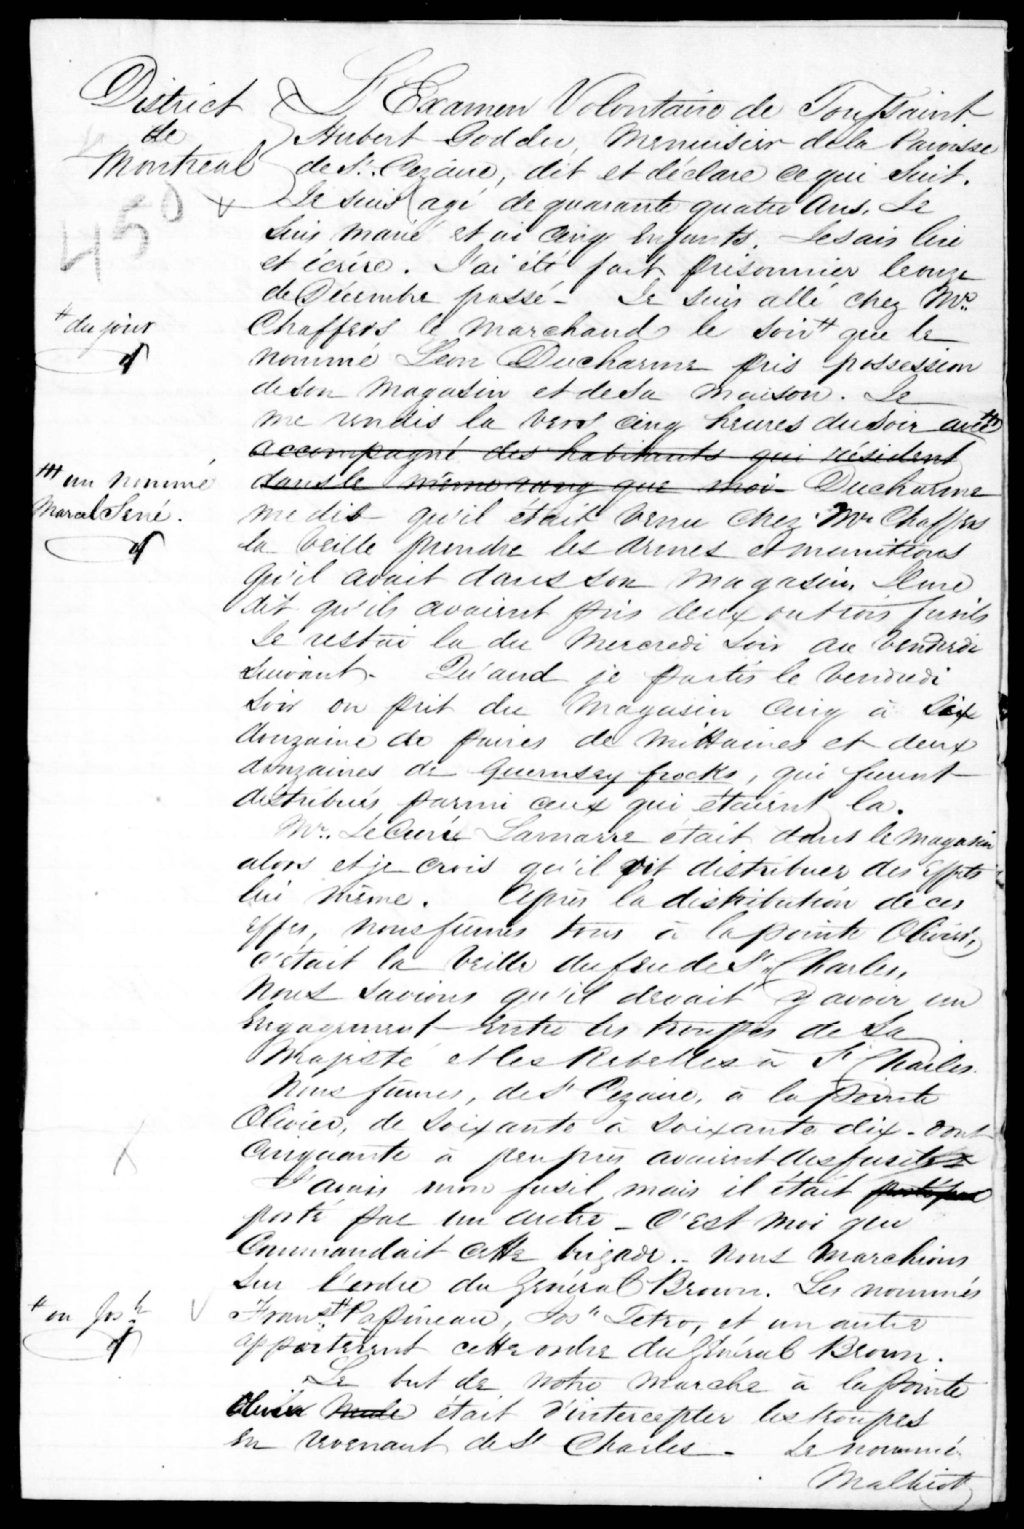 District
de
Montréal
L'Examen Volontaire de Toussaint
Hubert Goddu, Menuisier de la Paroisse
de St. Cezaire, dit et déclare ce qui suit.
450
Je suis agé de quarante quatre ans. Je
suis marié et ai cinq Enfants. Je sais lire
et écrire. J'ai été fait prisonnier le onze
de Décembre passé - Je suis allé chez Mr.
+ du jour
Chaffers le Marchand le soir + que le
nommé Léon Ducharme pris possession
de son Magasin et de sa maison. Je
me rendis la vers cinq heures du soir avec
accompagné des habitants qui résident
+++ un nommé
dans le même rang que moi - Ducharme
Marcel Sené.
me dit qu'il était venu chez Mr Chaffers
la veille prendre les armes et munitions
qu'il avait dans son magasin. Il me
dit qu'ils avaient pris deux ou trois fusils
Je restai la du Mercredi soir au Vendredi
suivant. Quand je partis le vendredi
soir on prit du Magasin cinq à six
douzaine de paires de Mittaines et deux
douzaines de Guernsey frocks, qui furent
distribués parmi ceux qui étaient la.
Mr. Le Curé Lamarre était dans le magasin
alors et je crois qu'il vit distribuer des effets
lui même. Après la distribution de ces
effets, nous fumes tous à la pointe Olivier,
c'était la veille du feu de St. Charles,
Nous savions qu'il devait y avoir un
Engagement entre les troupes de Sa
Majesté et les Rebelles à St Charles.
Nous fumes, de St Cezaire, à la pointe
Olivier, de soixante a soixante dix - dont
cinquante à peu près avaient des fusils -
J'avais mon fusil mais il était
porté par un autre - C'est moi qui
Commandait cette brigade - nous marchions
sur l'ordre du Général Brown. Les nommés
+ ou Josh
Frans + Papineau, Jos Tetro, et un autre
apportèrent cette ordre du Général Brown.
Le but de notre marche à la pointe
Olivier était d'intercepter les troupes
en revenant de St Charles - Le nommé
Malhiot